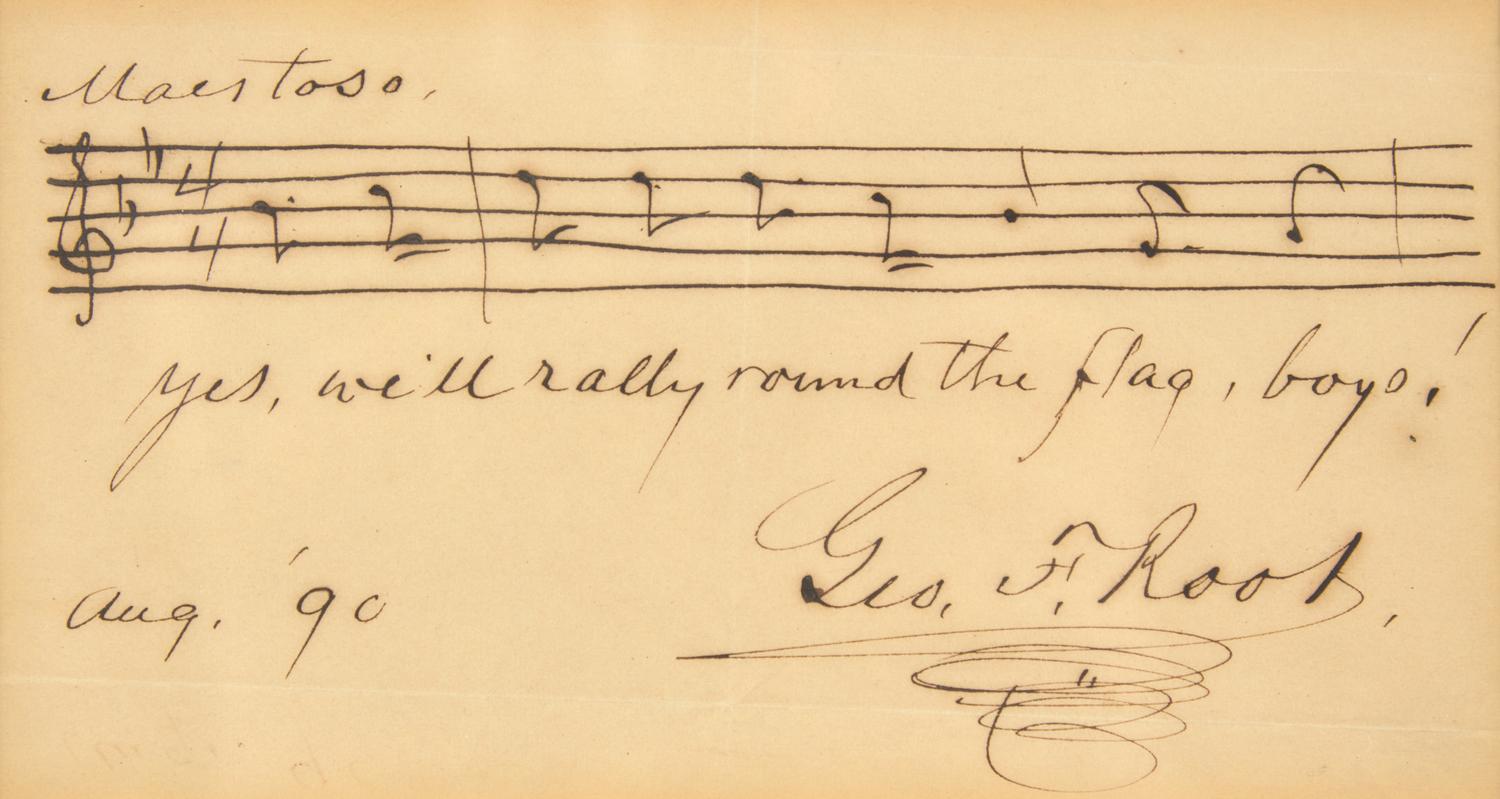 Maestoso.
4
4
Yes, we'll rally round the flag, boys!
Aug. '90
Geo. F. Root.